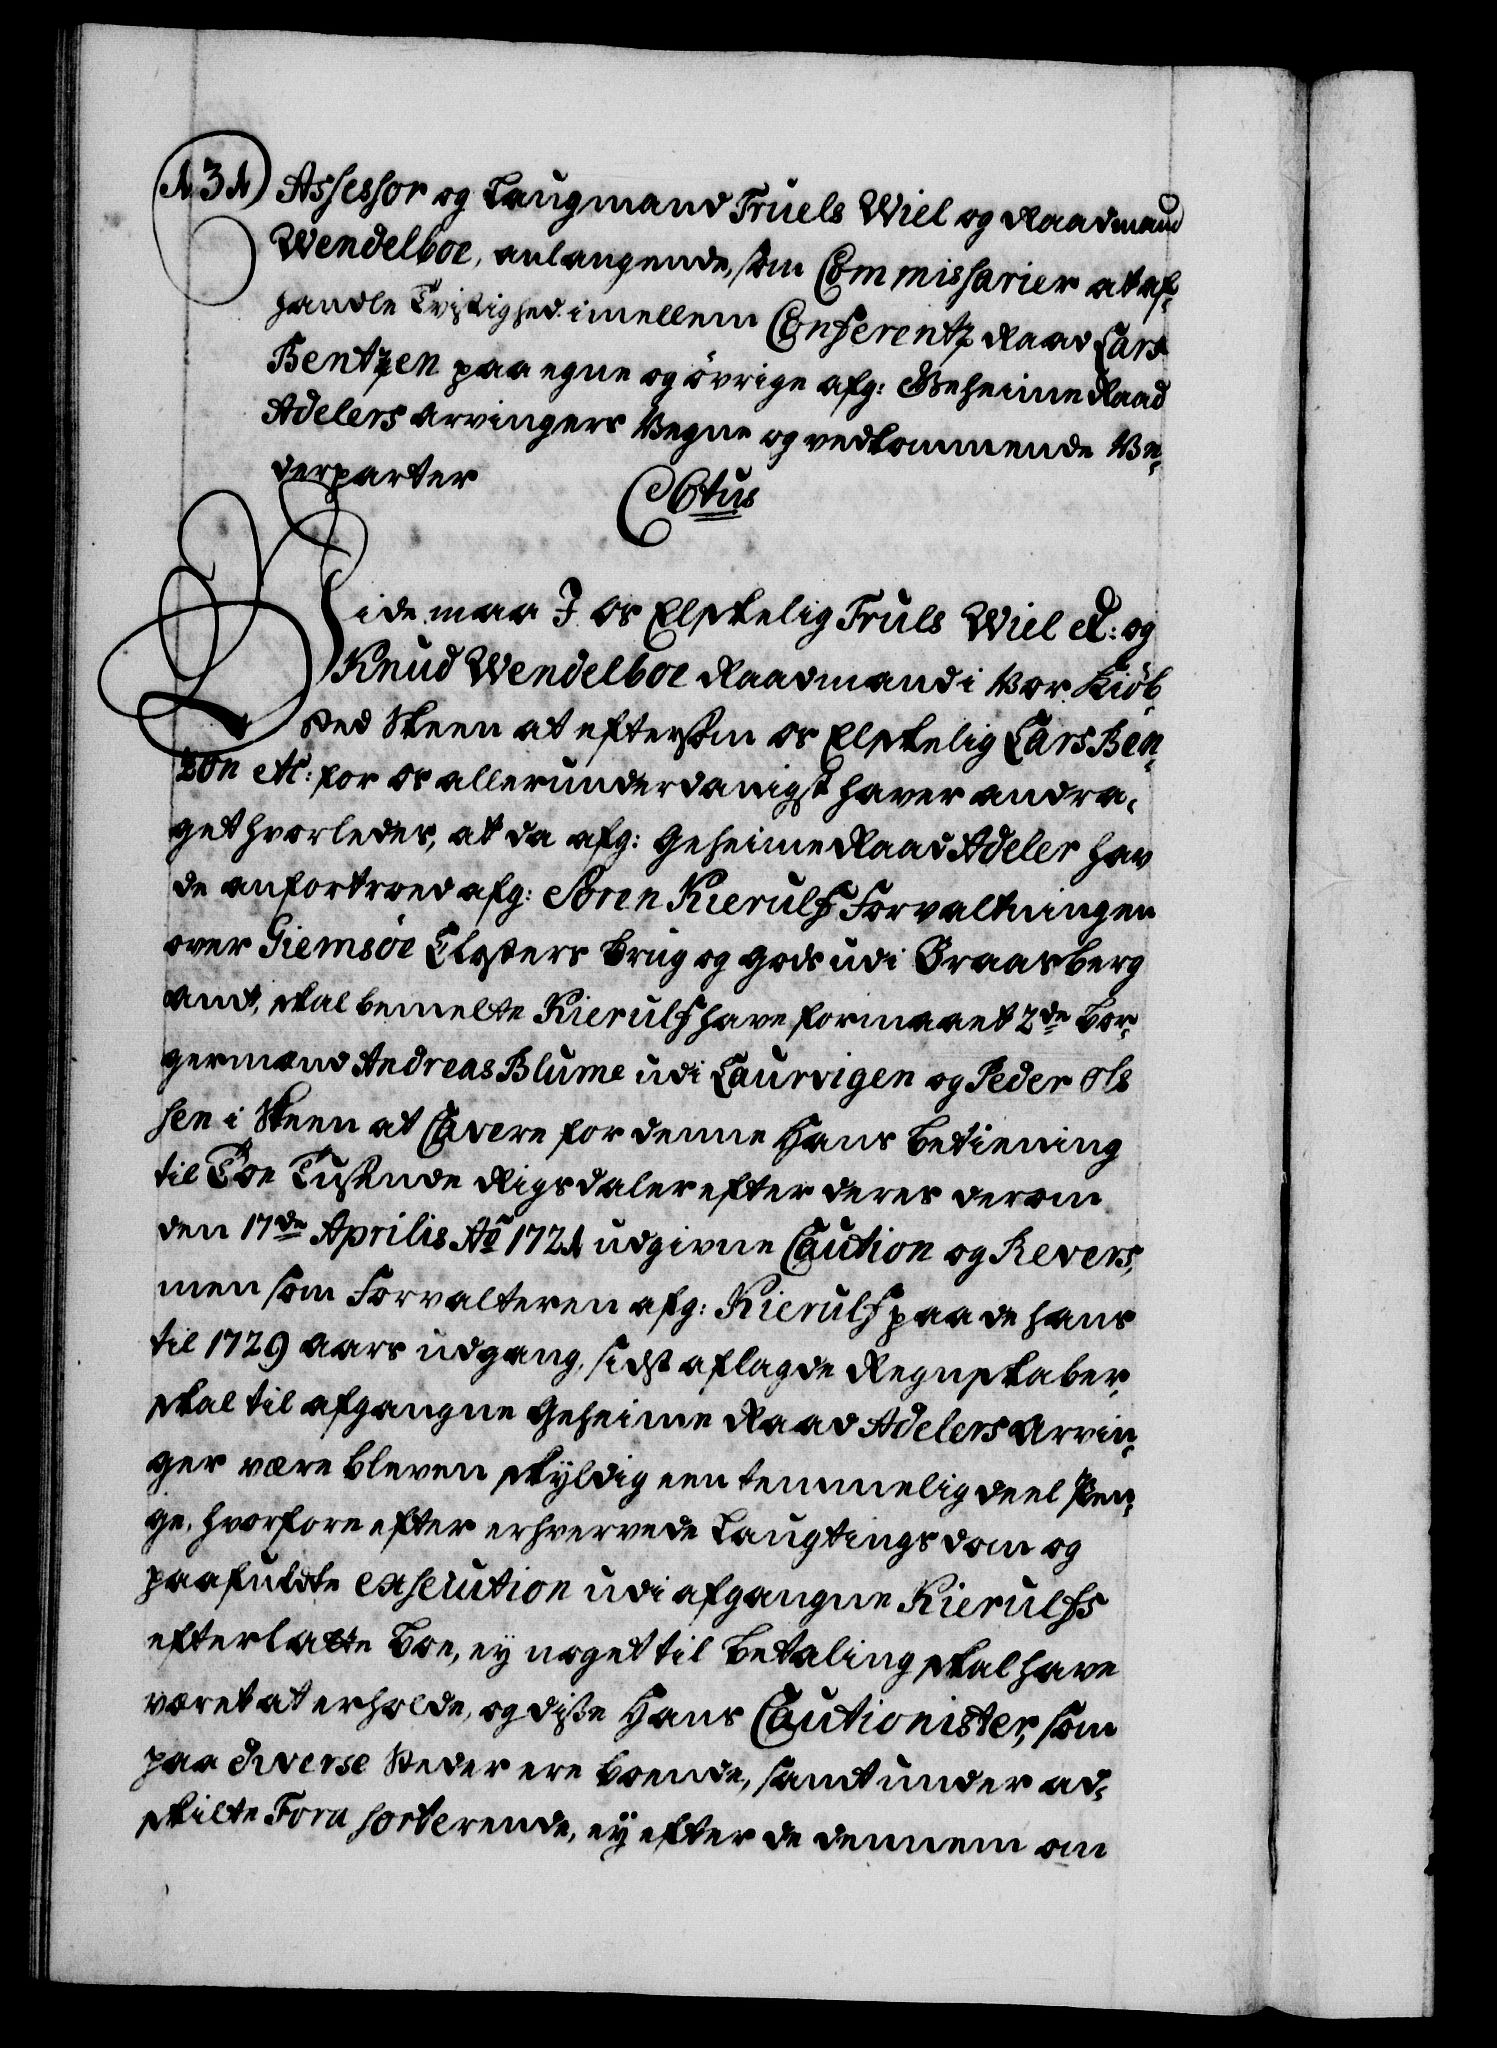 434 Assessor og Laugmand Truels Wiel og Raadmand
Wendelboe, anlangende, som Commissarier at af¬
handle Tvistighed imellem Conferentz Raad Lars
Bentzen paa egne og övrige afg: Geheime Raad
Adelers Arvingers Vegne og vedkommende Ve¬
derparter
Ctus
Vide maa I os Elskelig Truls Wiel R: og
Knud Wendelboe Raadmand i Vor Kiöb¬
sted Skeen at eftersom os Elskelig Lars Ben¬
zon etc: for os allerunderdanigst haver andra¬
get hvorledes, at da afg: Geheime Raad Adeler hav
de anfortroed afg: Sören Kierulf Forvaltningen
over Giemsöe Closters brug og gods udi Braasberg
amt, skal bemelte Kierulf have formaaet 2de bor¬
germænd Andreas Blume udi Laurvigen og Peder Ols
sen i Skeen at Cavere for denne Hans betiening
til Toe Tusende Rigsdaler efter deres derom
den 17de Aprilis Ao 1724 udgivne Caution og Revers,
men som Forvalteren afg: Kierulf paa de hans
til 1729 aars udgang, sidst aflagde Regnskaber,
skal til afgangne Geheime Raad Adelers Arvin¬
ger være bleven skyldig een temmelig deel Pen¬
ge, hvorfore efter erhvervede Laugtings dom og
paafuldte exsecution udi afgangne Kierulfs
efterlatte boe, ey noget til betaling skal have
været at erholde, og disse Hans Cautionister, som
paa diverse Steder ere boende, samt under ad¬
skilte Fora sorterende, ey efter de dennem om